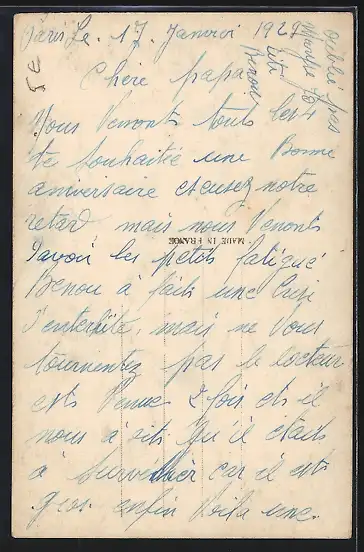 Paris Le. 17. Janvier 1929
Chère papa
Nous Venonts touts les 4
te souhaitée une Bonne
aniversaire excusez notre
retard mais nous Venonts
d'avoir les petits fatigué
MADE IN FRANCE
Benou à faits une Crise
d'enterite, mais ne Vous
tourmentez pas le docteur
ets Venue 2 fois ets il
nous à dits qu'il étaits
à surveiller car il ets
gros. enfin Voila une
oublié pas